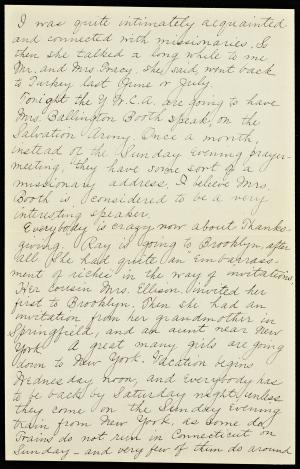 I was quite intimately acquainted
and connected with missionaries. So
then she talked a long while to me
Mr. and Mrs. Tracy, she said went back
to Turkey last June or July.
Tonight the Y.W.C.A. are going to have
Mrs. Ballington Booth speak, on the
Salvation Army. Once a month,
instead of the Sunday evening prayer-
meeting, they have some sort of a
missionary address. I believe Mrs.
Booth is considered to be a very
interesting speaker.
Everybody is crazy now about Thanks-
giving. Ray is going to Brooklyn, after
all. She had quite an "embarrass-
ment of riches" in the way of invitations.
Her cousin Mrs. Ellison, invited her
first to Brooklyn. Then she had an
invitation from her grandmother in
Springfield, and an aunt near New
York. A great many girls are going
down to New York. Vacation begins
Wednesday noon, and everybody has
to be back by Saturday night, unless
they come on the Sunday evening
train from New York, as some do.
Trains do not run in Connecticut on
Sunday - and very few of them do around